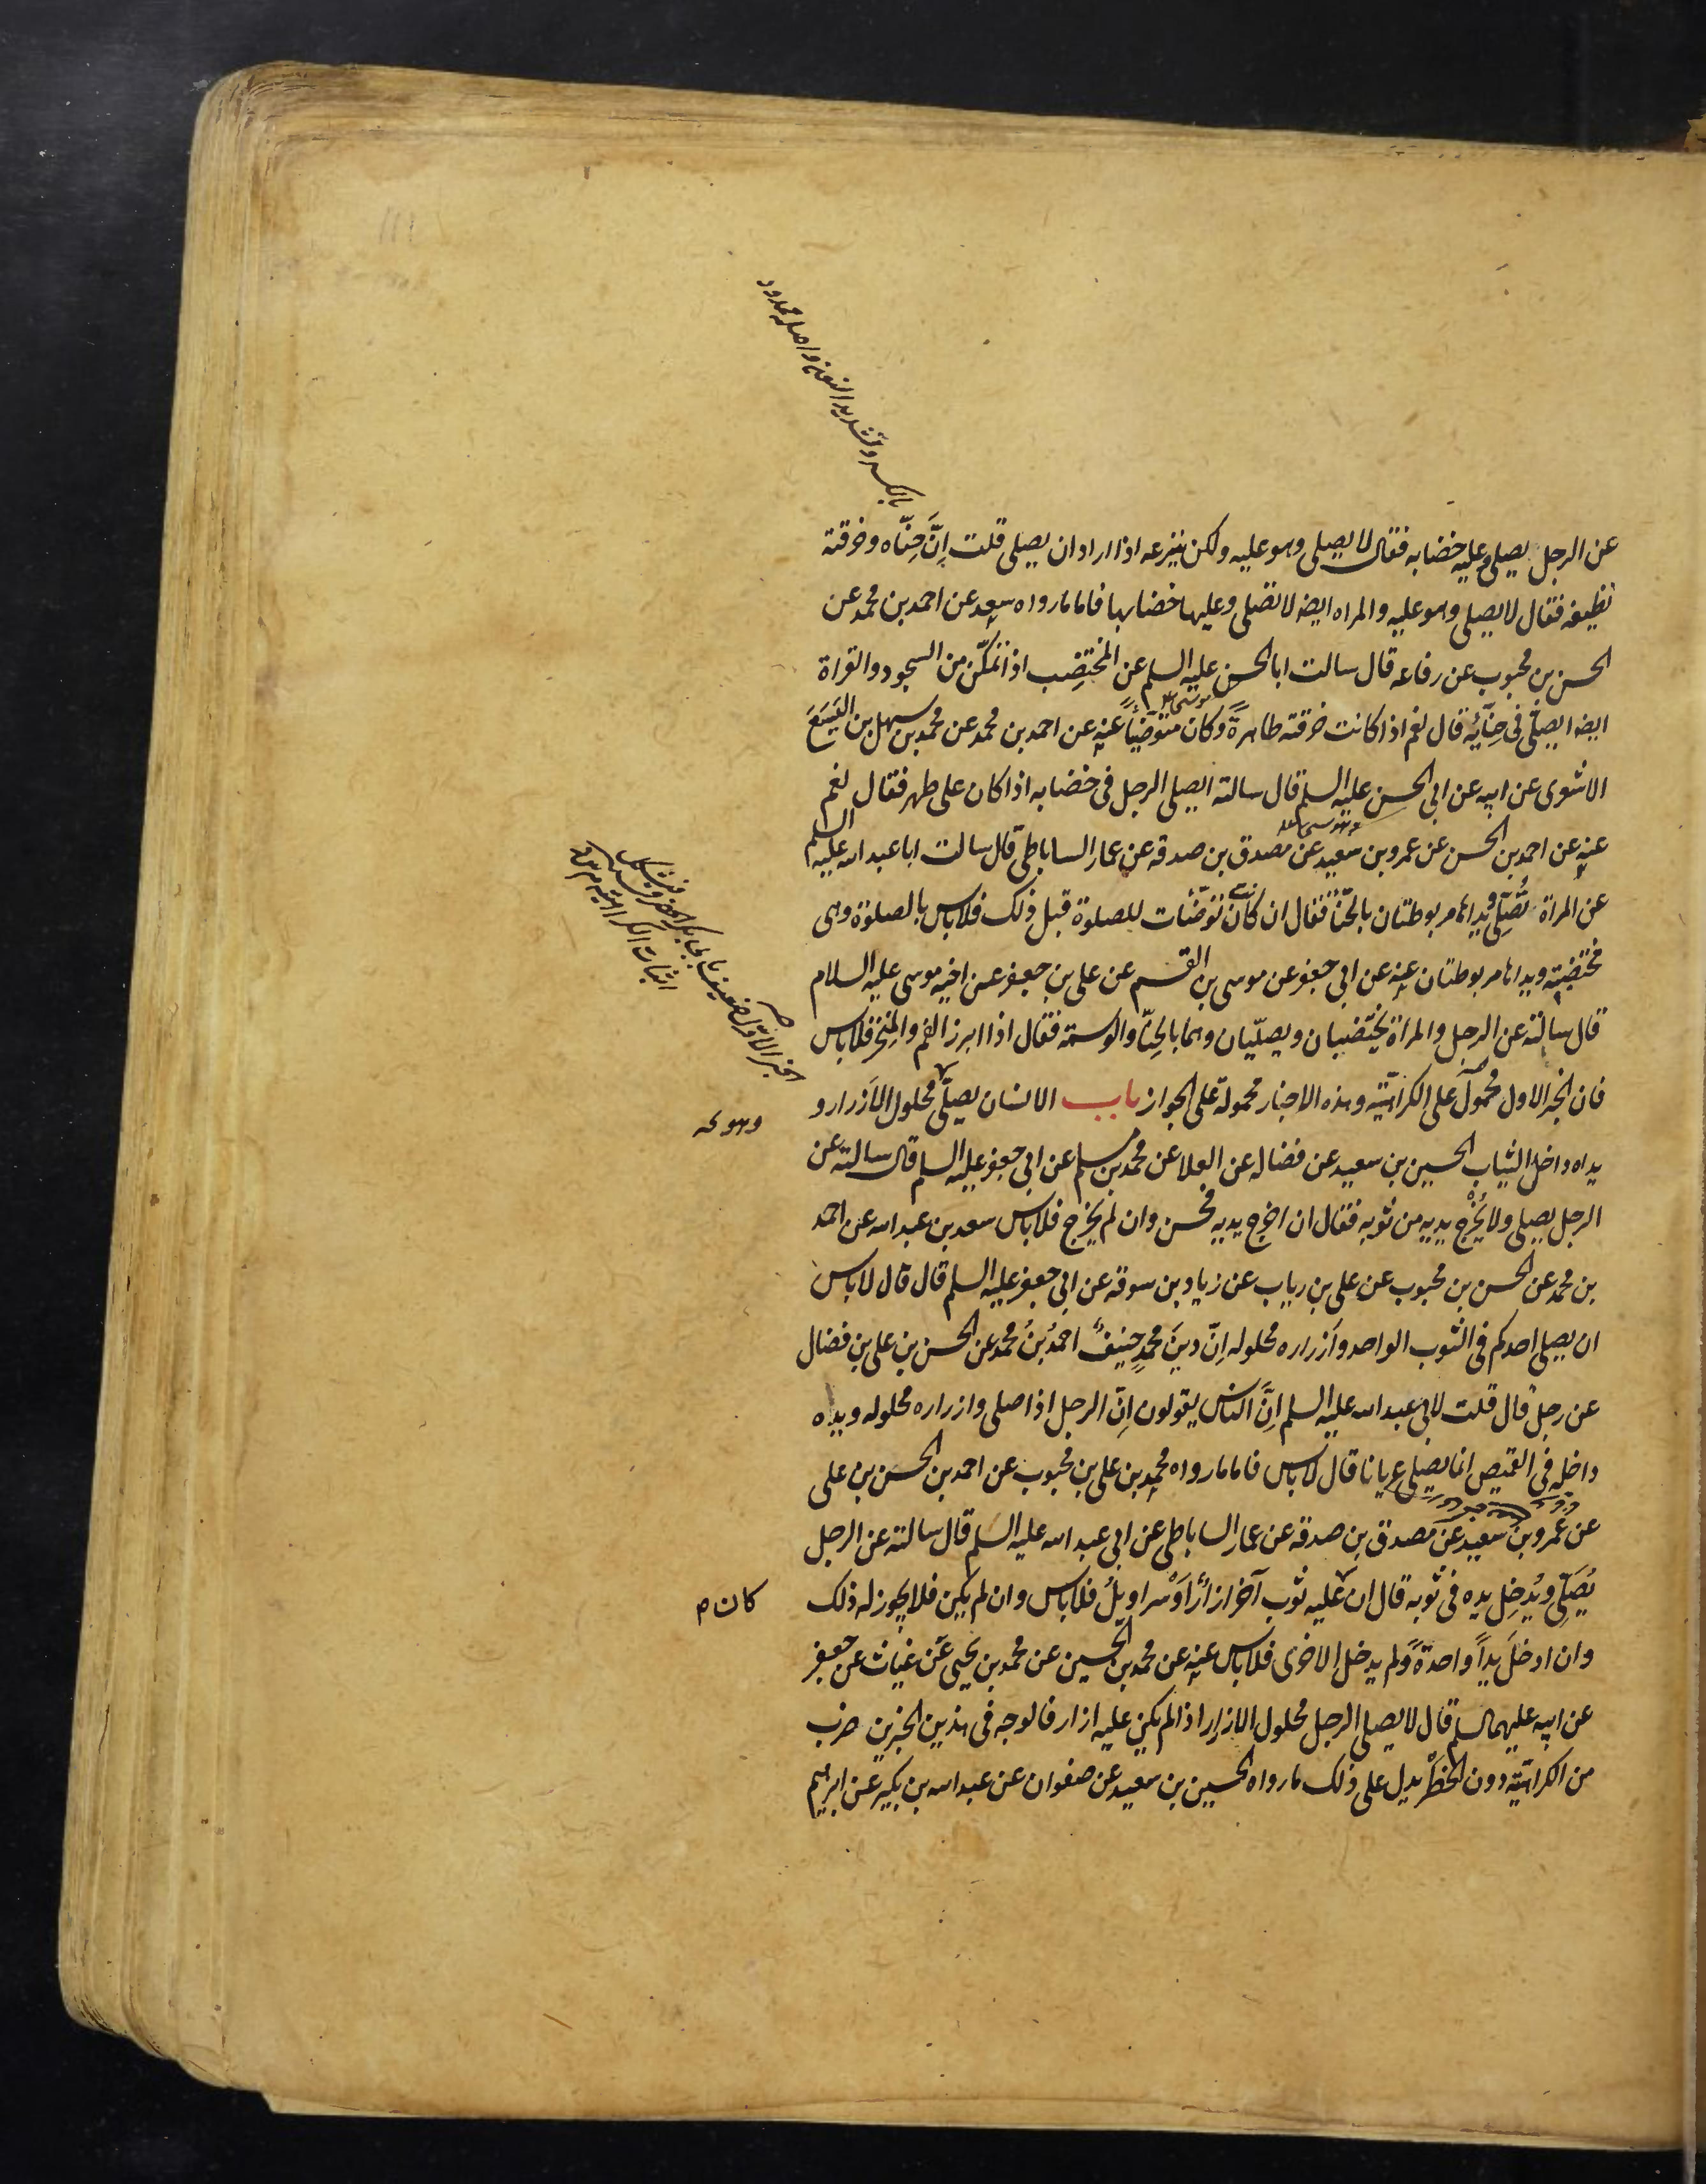 عن الرجل يصلي وعليه خضابه فقال لا يصلي وهو عليه ولكن ينزعه اذا اراد ان يصلي قلت اِنَّ حِنّاه وخرقته
نظيفه فقال لا يصلي وهو عليه والمراه ايضا لا تصلي وعليها خضابها فاما ما رواه سعد عن احمد بن محمد عن
الحسن بن محبوب عن رفاعه قال سالت ابا الحسن عليه السلم عن المختضِب اذا تمكّن من السجود والقراة
ايضا ايصلّي في حِنّائِه قال نعم اذا كانت خرقته طاهرةً وكان متوضّياً عنه عن احمد بن محمد عن محمد بن سهل بن اليَسَعَ
الاشعرى عن ابيه عن ابى الحسن عليه السلم قال سالته ايصلي الرجل في خضابه اذا كان على طهر فقال نعم
عنه عن احمد بن الحسن عن عمرو بن سعيد عن مصدق بن صدقه عن عمار الساباطى قال سالت ابا عبد الله عليه السلم
عن المراة تُصَلّي ويداها مربوطتان بالحنّا فقال ان كانت توضّئات للصلوة قبل ذلك فلا باس بالصلوة وهى
مختضبة ويداها مربوطتان عنه عن ابى جعفر عن موسى بن القسم عن على بن جعفر عن اخيه موسى عليه السلام
قال سالته عن الرجل والمراة يختضبان ويصلّيان وهما بالحِنّا والوسمة فقال اذا ابرز الفم والمنخر فلا باس
فان الخبر الاول محمولٌ على الكراهيّة وهذه الاخبار محمولة على الجواز باب الانسان يصلّى محلول الاَزرار و
يداه داخل الثياب الحسين بن سعيد عن فضاله عن العلا عن محمد بن مسلم عن ابى جعفر عليه السلم قال سالته عن
الرجل يصلى ولا يُخْرج يديه من ثوبه فقال ان اخرج يديه فحسن وان لم يخرج فلا باس سعد بن عبد الله عن احمد
بن محمد عن الحسن بن محبوب عن على بن رياب عن زياد بن سوقة عن ابى جعفر عليه السلم قال قال لا باس
ان يصلى احدكم فى الثوب الواحد وَاَزراره محلوله اِنّ دينَ محمدٍ حنيفٌ احمدُ بنُ محمد عن الحسن بن على بن فضال
عن رجل قال قلت لابى عبد الله عليه السلم اِنَّ الناس يقولون اِنّ الرجل اذا صلى وازراره محلوله ويداه
داخله فى القميص انما يصلى عريانا قال لا باس فاما ما رواه محمد بن على بن محبوب عن احمد بن الحسن بن على
عن عمرو بن سعيد عن مصدق بن صدقه عن عمار الساباطى عن ابى عبد الله عليه السلم قال سالته عن الرجل
يُصَلّى ويُدخِل يده فى ثوبه قال ان عليه ثوب آخر ازارٌ اَوْ سراويلُ فلا باس وان لم يكن فلا يجوز له ذلك
كان م
وان ادخلَ يداً واحدةً ولم يدخل الاخرى فلا باس عنه عن محمد بن الحسين عن محمد بن يحيى عَن غياث عن جعفر
عن ابيه عليهما السلم قال لا يصلى الرجل محلول الازرار اذا لم يكن عليه ازار فالوجه فى هذين الخبرين ضرب
من الكراهيّة دون الحَظْر يدل على ذلك ما رواه الحسين بن سعيد عن صفوان عن عبد الله بن بكير عن ابرهيم
بالكسر وتشديد النون واصله ممدود